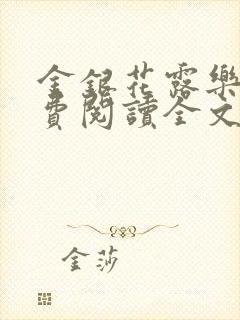 金銀花露樂
費閱讀全文
金莎